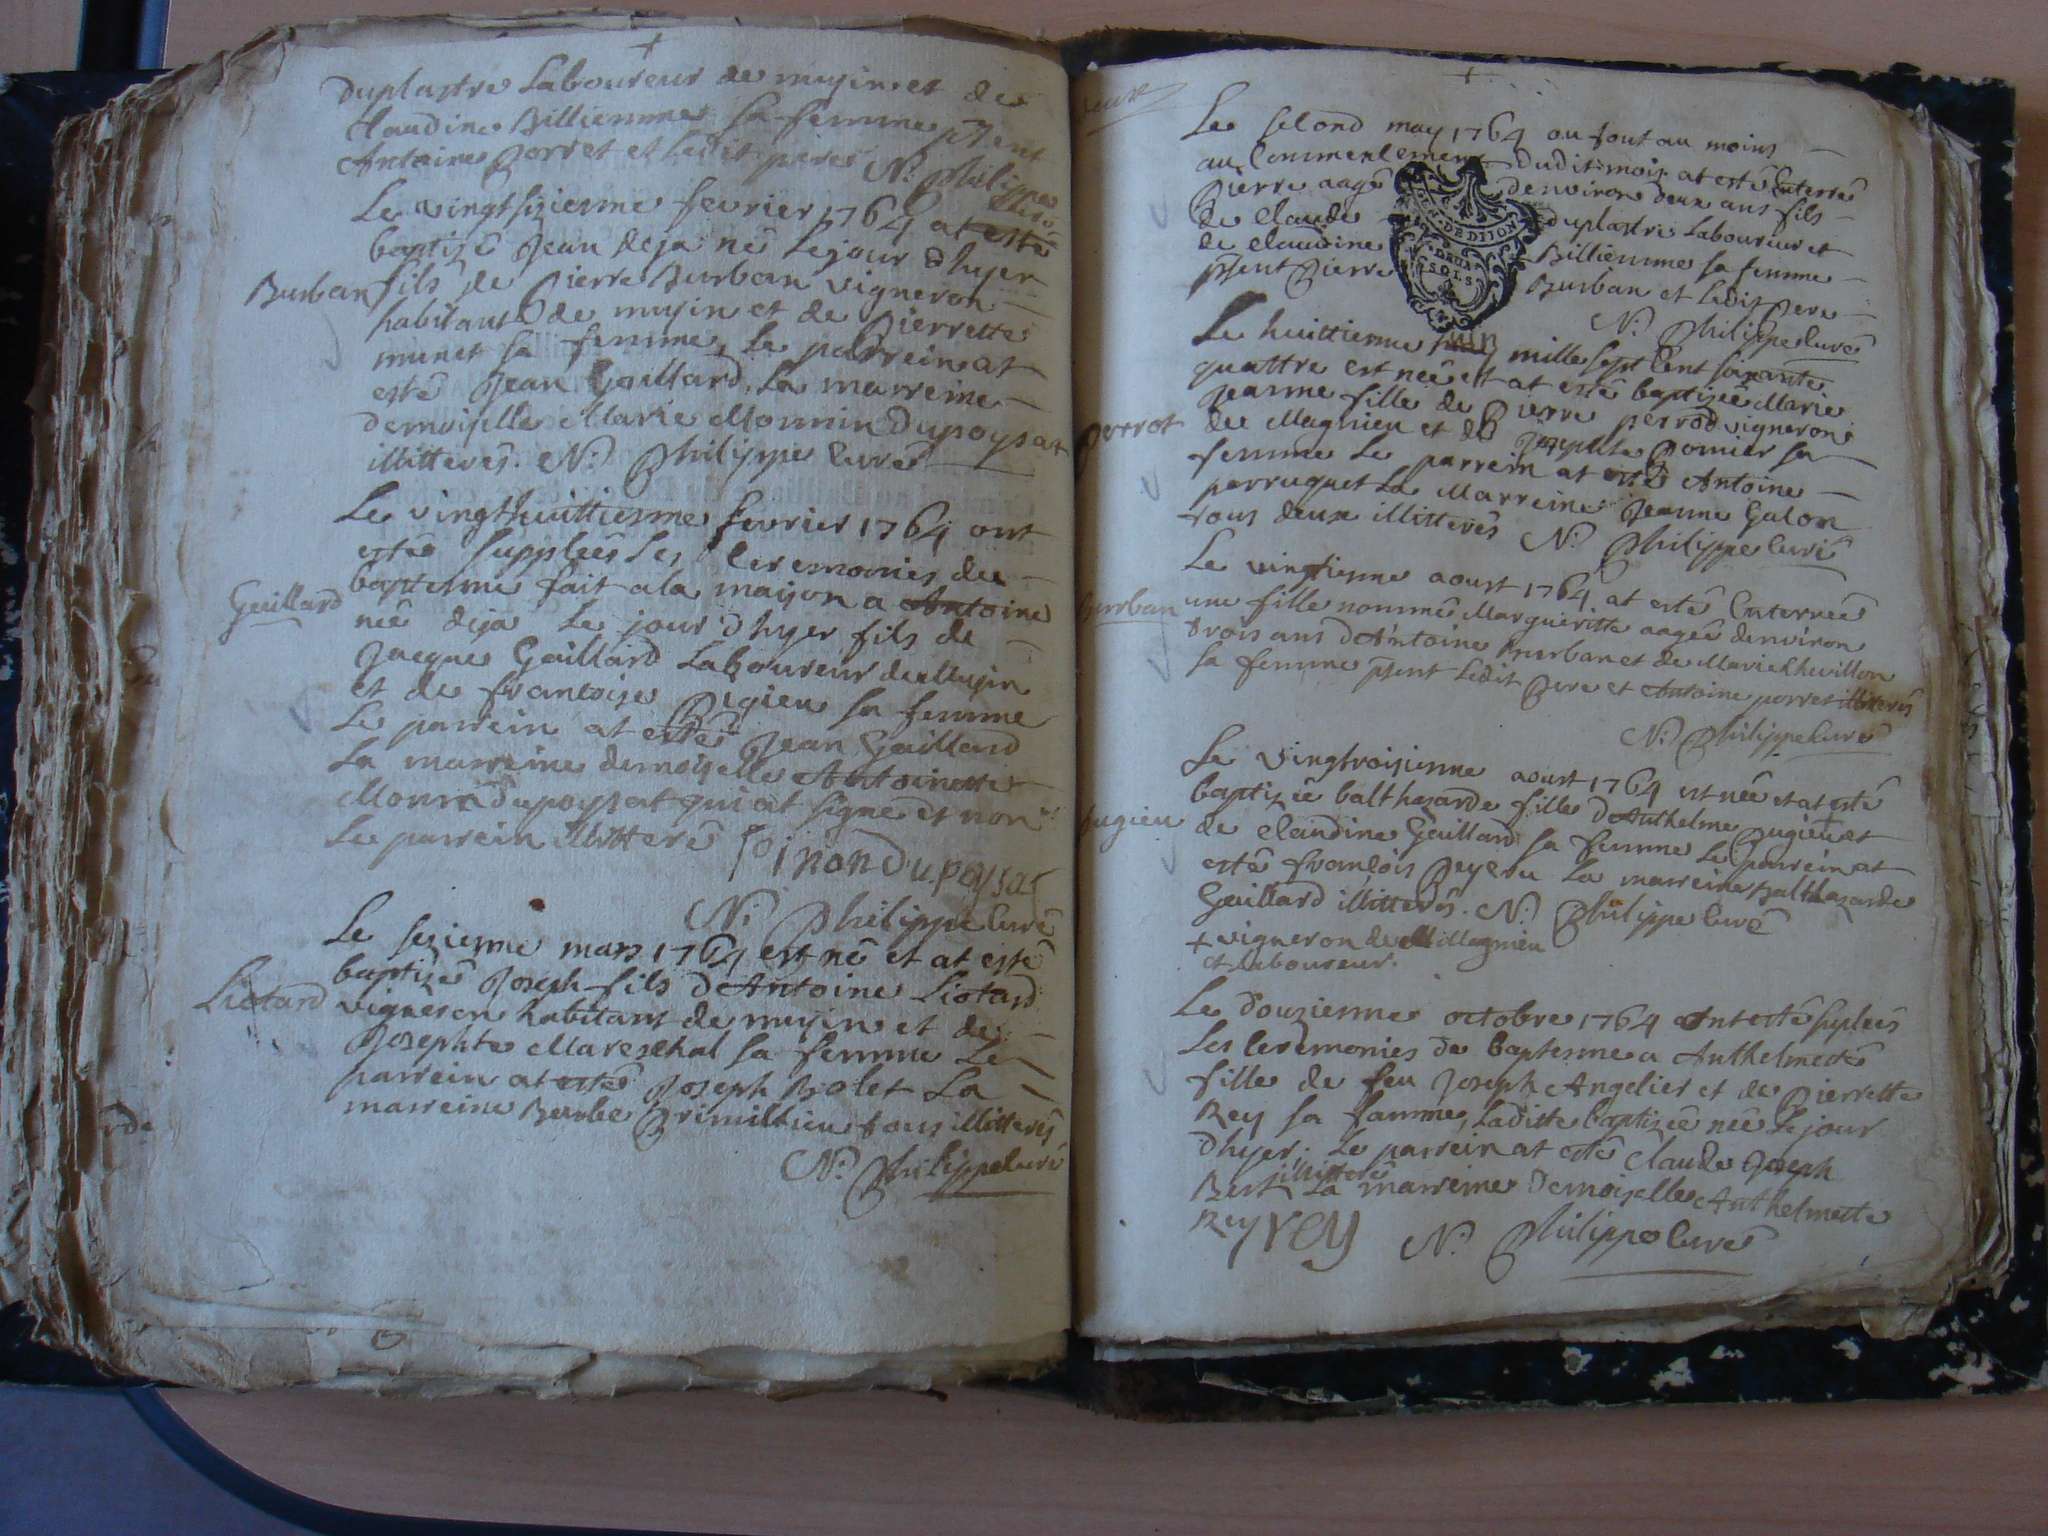 Duplastre Laboureur de musin et de
Claudine Billiemme sa femme pñent
Antoine Porret et ledit pere N. Philippe
Curé
Le vingtsizieme fevrier 1764 at esté
baptizé Jean deja né le jour d'hyer
Burban
fils de Pierre Burban vigneron
habitant de musin et de Pierrette
munet sa femme, Le parrein at
esté Jean Gaillard, La marreine
demoiselle Marie Monnin Dupoysat
illitterés. N. Philippe Curé
Le vingthuittiesme fevrier 1764 ont
estés supplées les Ceremonies du
baptesme fait a la maison a Antoine
Gaillard
né deja le jour d'hyer fils de
Jacque Gaillard Laboureur de Musin
et de francoise Pugieu sa femme
Le parrein at esté Jean Gaillard
La marreine demoiselle Antoinette
Monin dupoysat qui at signé et non
Le parrein illitteré
N. Philippe Curé
Le sezieme mars 1764 est né et at esté
baptizé Joseph fils d'Antoine Liotard
Liotard
vigneron habitant de musin et de
Josephte Mareschal sa femme Le
parrein at esté Joseph Bolet La
marreine Berube Brimillieu tous illitterés
N. Philippe Curé
Le second may 1764 ou tout au moins
au Commencement dudit mois at esté Enterré
Pierre aagé d'environ deux ans fils
de Claude duplastre Laboureur et
de Claudine Billiemme sa femme
pñent Pierre Burban et ledit pere
GEN. DE DIJON
DEUX
SOLS
N. Philippe Curé
Le huittieme juin mille sept Cent soixante
quattre est née et at esté baptizée Marie
Jeanne fille de Pierre perrod vigneron
Perrot
de Magnieu et de Josephte Pornier sa
femme Le parrein at esté Antoine
perruquet La Marreine Jeanne Galon
tous deux illitterés N. Philippe Curé
Le vingtieme aoust 1764 at esté Enterrée
Burban
une fille nommé Margueritte aagée d'environ
trois ans d'Antoine burban et de Marie Chevillon
sa femme pñent ledit Pere et Antoine porret illiterés
N. Philippe Curé
Le vingtroisieme aoust 1764 est née et at esté
baptizée balthazarde fille d'Anthelme Pugieu et
Pugieu
de Claudine Gaillard sa femme Le parrein at
esté francois Peyssu La marreine Balthazarde
Gaillard illitterés. N. Philippe Curé
+ vigneron de Magnieu
et Laboureur.
Le douzieme octobre 1764 ont esté suplées
Les Ceremonies de baptesme a Anthelmette
fille de feu Joseph Angelier et de Pierrette
Rey sa famme, Laditte baptizée née le jour
d'hyer. Le parrein at esté Claude Joseph
Bert illitteré La marreine Demoiselle Anthelmette
Rey rey N. Philippe Curé